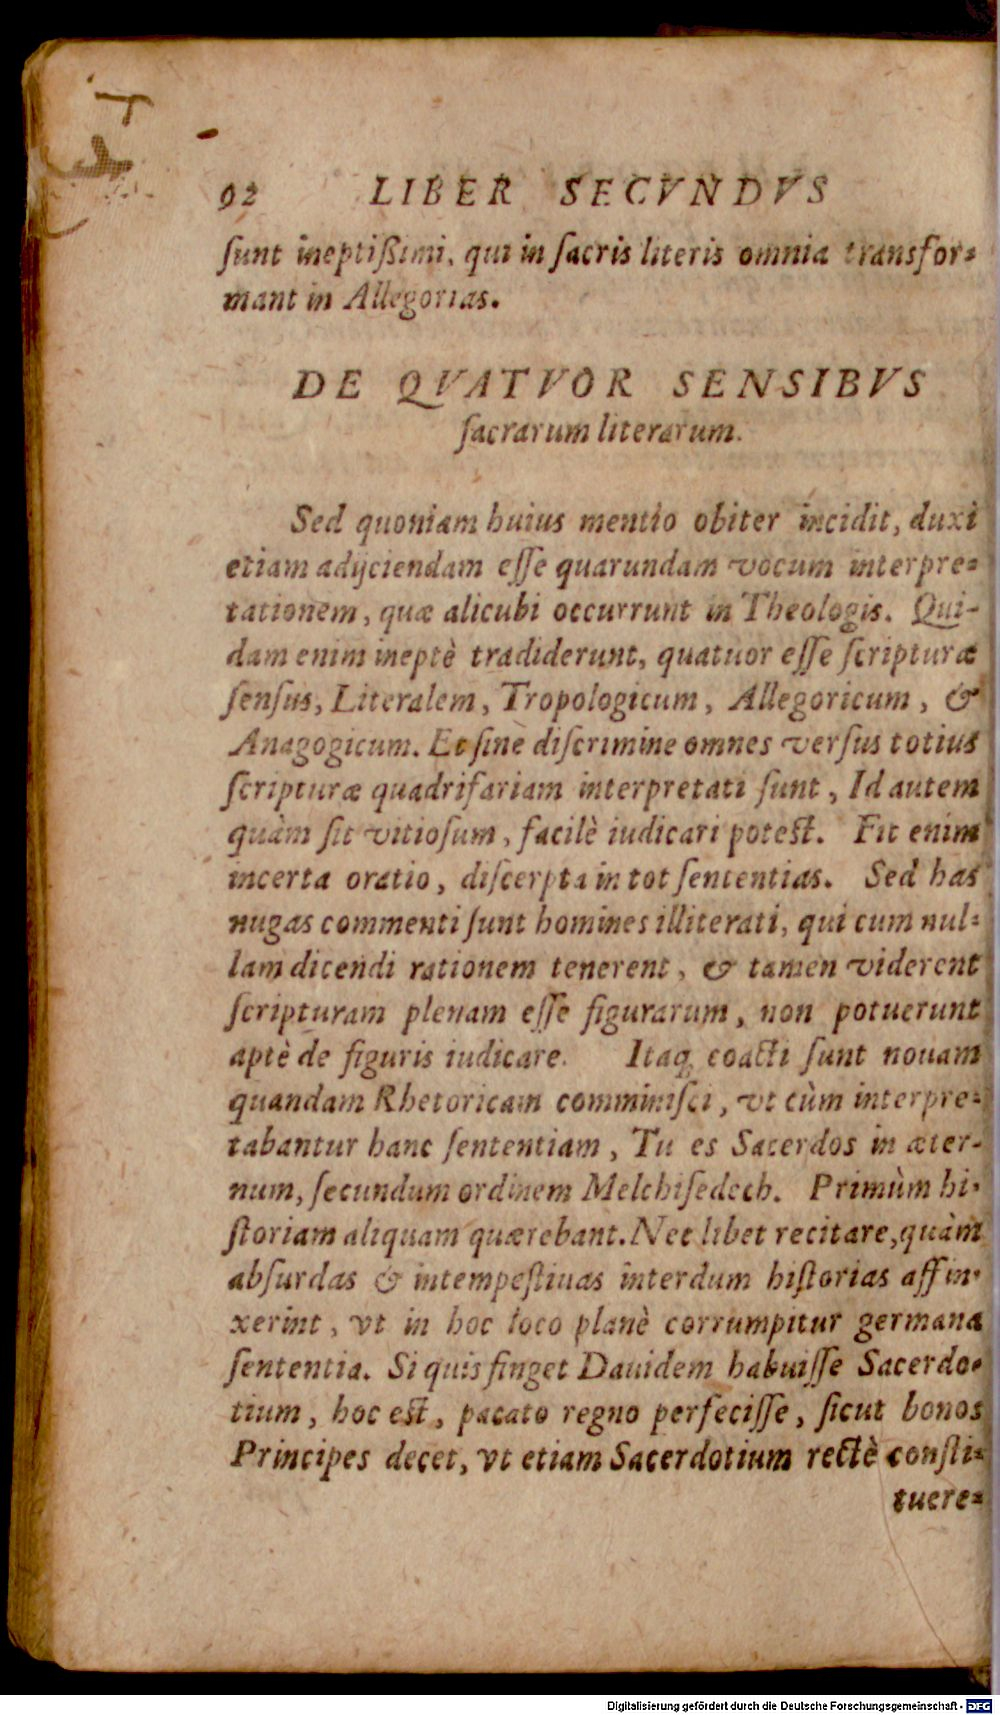 92 LIBER SECVNDVS
ſunt ineptißimi, qui in ſacris literis omnia transfor-
mant in Allegorias.
DE QVATVOR SENSIBVS
ſacrarum literarum.
Sed quoniam huius mentio obiter incidit, duxi
etiam adijciendam eſſe quarundam vocum interpre-
tationem, quæ alicubi occurrunt in Theologis. Qui-
dam enim ineptè tradiderunt, quatuor eſſe ſcripturæ
ſenſus, Literalem, Tropologicum, Allegoricum, &
Anagogicum. Et ſine diſcrimine omnes verſus totius
ſcripturæ quadrifariam interpretati ſunt, Id autem
quàm ſit vitioſum, facilè iudicari poteſt. Fit enim
incerta oratio, diſcerpta in tot ſententias. Sed has
nugas commenti ſunt homines illiterati, qui cum nul-
lam dicendi rationem tenerent, & tamen viderent
ſcripturam plenam eſſe figurarum, non potuerunt
aptè de figuris iudicare. Itaq; coacti ſunt nouam
quandam Rhetoricam comminiſci, vt cùm interpre-
tabantur hanc ſententiam, Tu es Sacerdos in æter-
num, ſecundum ordinem Melchiſedech. Primùm hi-
ſtoriam aliquam quærebant. Nec libet recitare, quàm
abſurdas & intempeſtiuas interdum hiſtorias affin-
xerint, vt in hoc loco planè corrumpitur germana
ſententia. Si quis finget Dauidem habuiſſe Sacerdo-
tium, hoc eſt, pacato regno perfeciſſe, ſicut bonos
Principes decet, vt etiam Sacerdotium rectè conſti-
tuere-
Digitalisierung gefördert durch die Deutsche Forschungsgemeinschaft - DFG